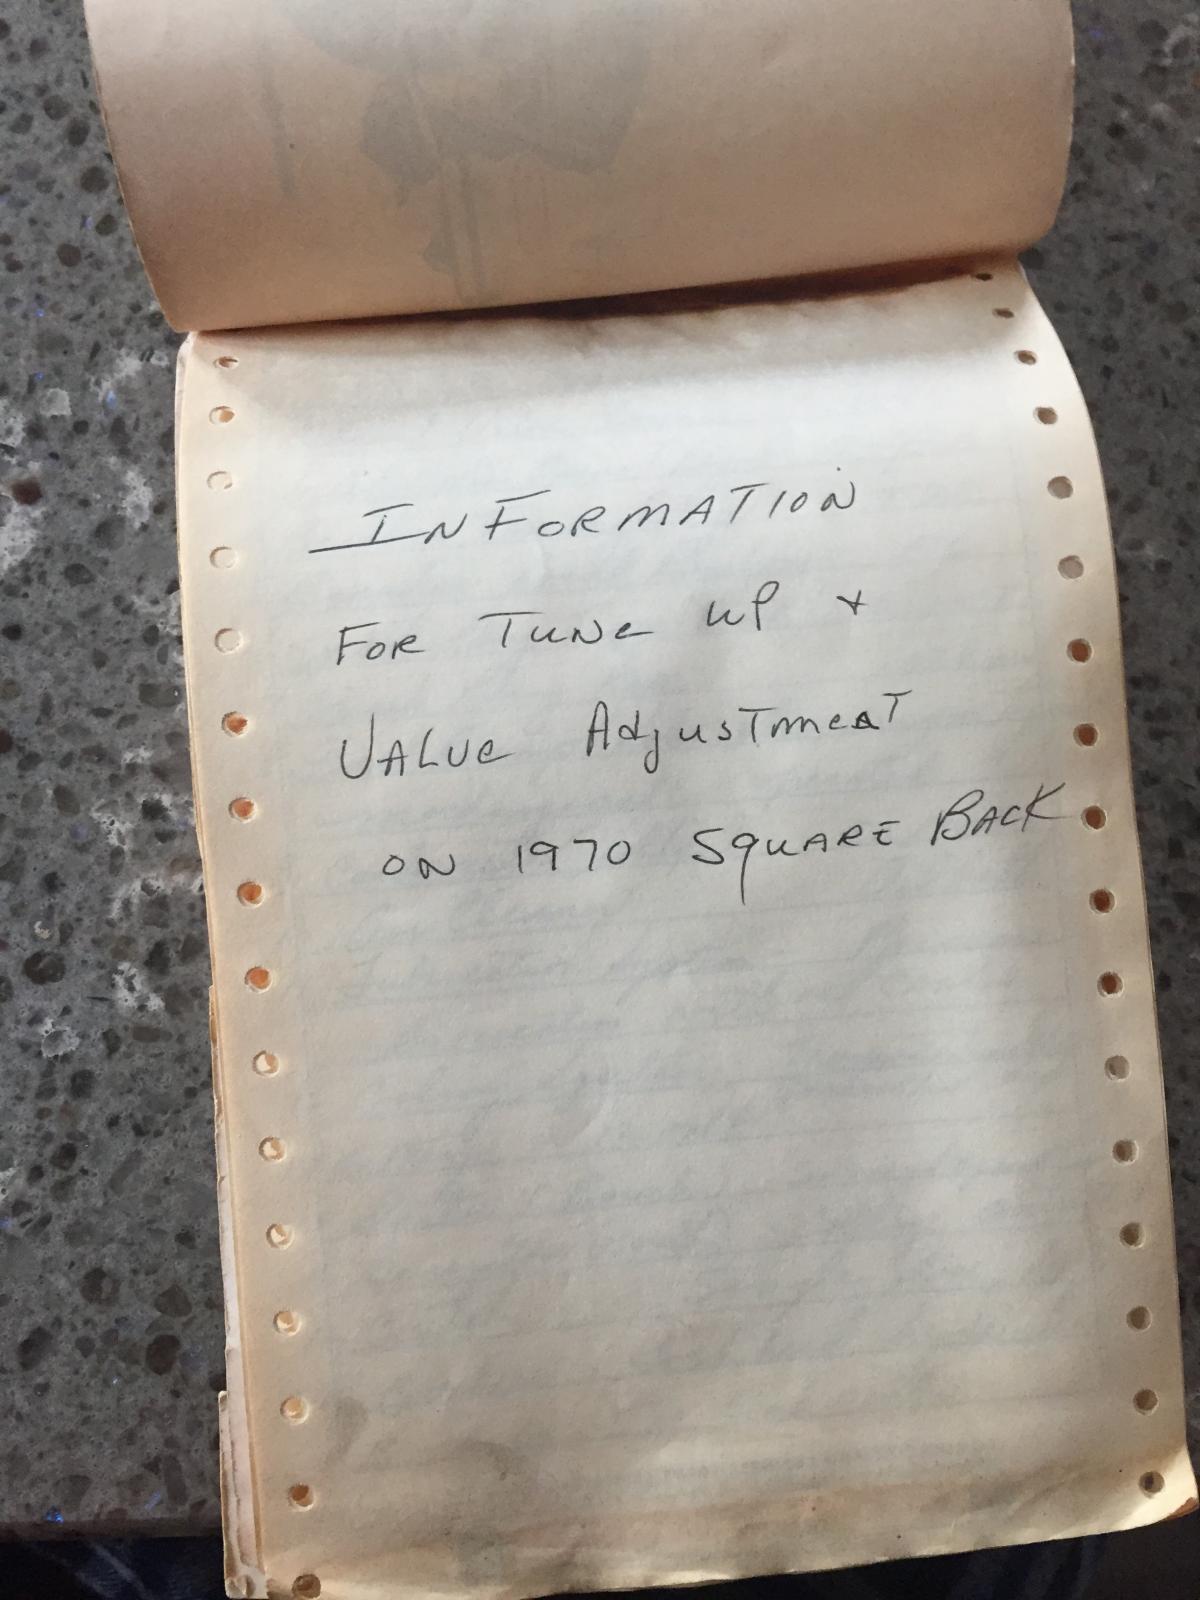 INFORMATION
FOR TUNE UP +
VALVE ADJUSTMENT
ON 1970 SQUARE BACK